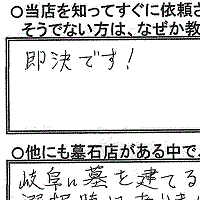 ○当店を知ってすぐに依頼さ
そうでない方は、なぜか教
即決です!
○他にも墓石店がある中で、
岐阜に墓を建てる